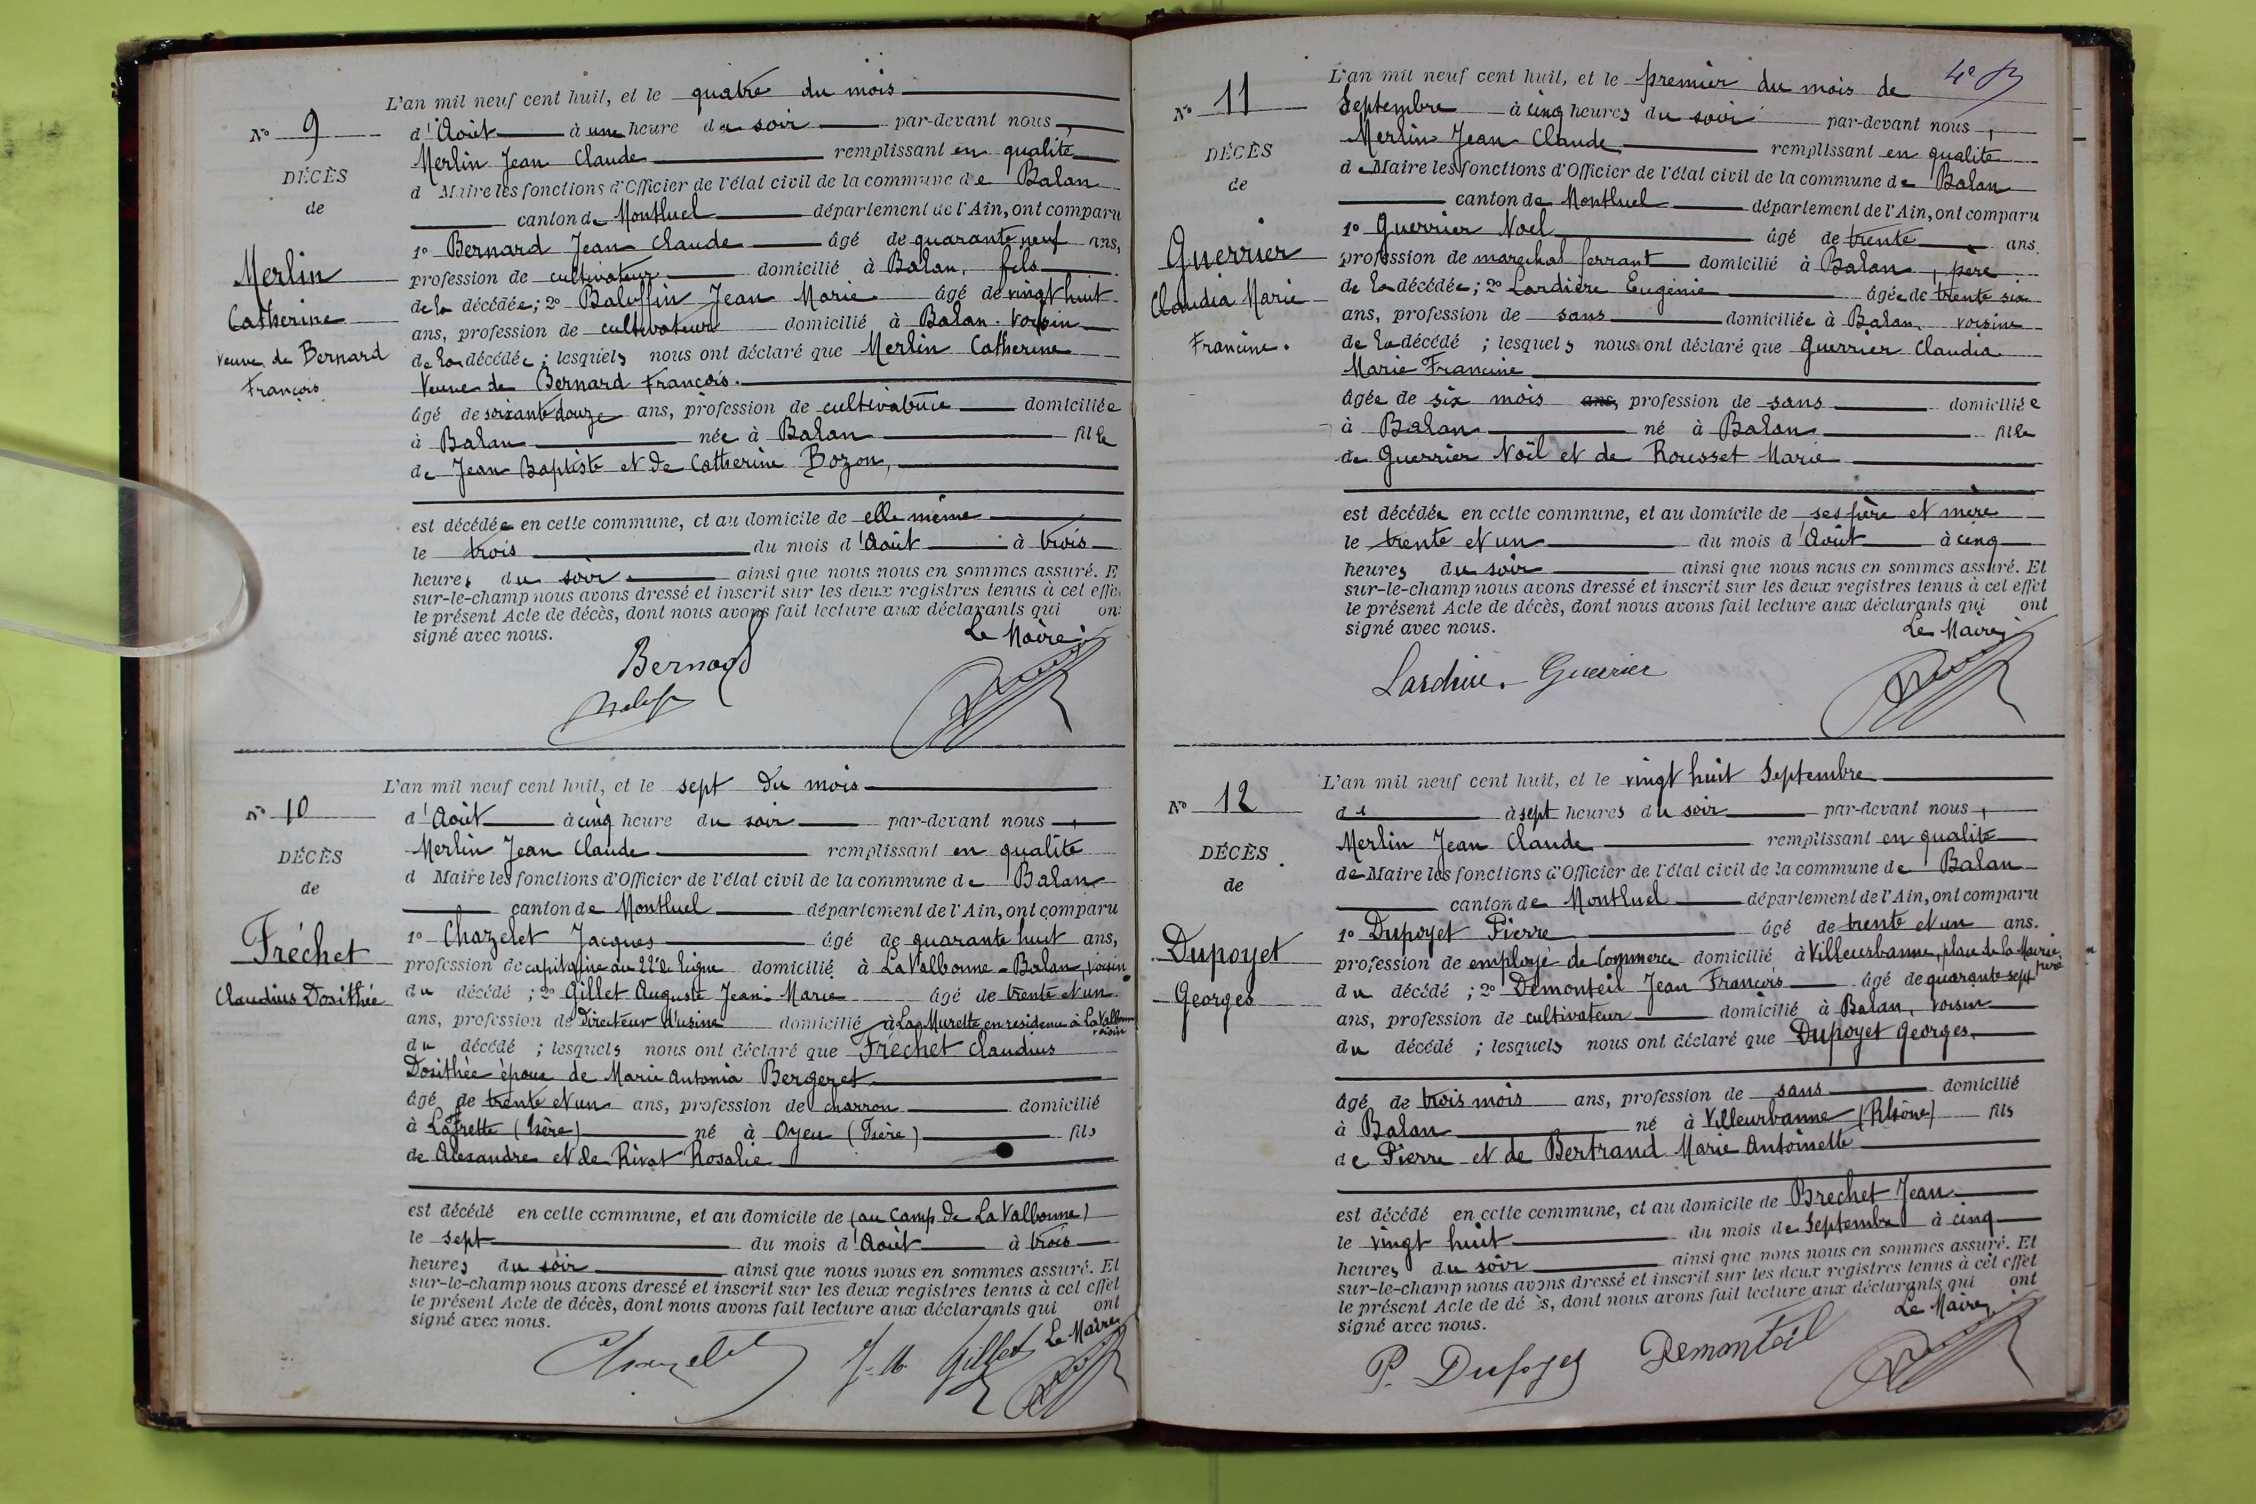 L'an mil neuf cent huit, et le quatre du mois
No 9
d'Août à une heure du soir par-devant nous,
Merlin Jean Claude remplissant en qualité
DÉCÈS
d Maire les fonctions d'Officier de l'état civil de la commune de Balan
de
canton de Montluel département de l'Ain, ont comparu
1o Bernard Jean Claude âgé de quarante neuf ans,
Merlin
profession de cultivateur domicilié à Balan, fils
de la décédée; 2o Baluffin Jean Marie âgé de vingt huit
Catherine
ans, profession de cultivateur domicilié à Balan. voisin
veuve de Bernard
de la décédée; lesquels nous ont déclaré que Merlin Catherine
François
Veuve de Bernard François.
âgé de soixante douze ans, profession de cultivatrice domiciliée
à Balan née à Balan fille
de Jean Baptiste et de Catherine Bozon,
est décédée en cette commune, et au domicile de elle même
le trois du mois d'Août à trois
heures du soir ainsi que nous nous en sommes assuré. E
sur-le-champ nous avons dressé et inscrit sur les deux registres tenus à cet effe
le présent Acte de décès, dont nous avons fait lecture aux déclarants qui on
signé avec nous. Le Maire
Bernard
L'an mil neuf cent huit, et le sept du mois
No 10
d'Août à cinq heure du soir par-devant nous,
Merlin Jean Claude remplissant en qualité
DÉCÈS
d Maire les fonctions d'Officier de l'état civil de la commune de Balan
de
canton de Montluel département de l'Ain, ont comparu
Fréchet
1o Chazelet Jacques âgé de quarante huit ans,
profession de capitaine au 22e ligne domicilié à La Valbonne - Balan, voisin
Claudius Dosithée
du décédé; 2o Gillet Auguste Jean-Marie âgé de trente et un
ans, profession de Directeur d'usine domicilié à La Murette en residence à La Valbonne
voisin
du décédé; lesquels nous ont déclaré que Fréchet Claudius
Dosithée époux de Marie Antonia Bergeret
âgé de trente et un ans, profession de charron domicilié
à Lafrette (Isère) né à Oyeu (Isère) fils
de Alexandre et de Rivat Rosalie
est décédé en cette commune, et au domicile de (au Camp de La Valbonne)
le sept du mois d'Août à trois
heures du soir ainsi que nous nous en sommes assuré. Et
sur-le-champ nous avons dressé et inscrit sur les deux registres tenus à cet effet
le présent Acte de décès, dont nous avons fait lecture aux déclarants qui ont
signé avec nous. Le Maire
Chazelet J. M. Gillet
L'an mil neuf cent huit, et le premier du mois de
No 11
Septembre à cinq heures du soir par-devant nous,
Merlin Jean Claude remplissant en qualité
DÉCÈS
de Maire les fonctions d'Officier de l'état civil de la commune de Balan
de
canton de Montluel département de l'Ain, ont comparu
1o Guerrier Noel âgé de trente ans
Guerrier
profession de marechal ferrant domicilié à Balan, père
Claudia Marie
de la décédée; 2o Lardière Eugénie âgée de trente six
ans, profession de sans domiciliée à Balan, voisine
Francine.
de la décédé; lesquels nous ont déclaré que Guerrier Claudia
Marie Francine
âgée de six mois ans, profession de sans domiciliée
à Balan né à Balan fille
de Guerrier Noël et de Rousset Marie
est décédée en cette commune, et au domicile de ses père et mère
le trente et un du mois d'Août à cinq
heures du soir ainsi que nous nous en sommes assuré. Et
sur-le-champ nous avons dressé et inscrit sur les deux registres tenus à cet effet
le présent Acte de décès, dont nous avons fait lecture aux déclarants qui ont
signé avec nous. Le Maire
Lardière. Guerrier
L'an mil neuf cent huit, et le vingt huit Septembre
No 12
de à sept heures du soir par-devant nous,
Merlin Jean Claude remplissant en qualité
DÉCÈS
de Maire les fonctions d'Officier de l'état civil de la commune de Balan
de
canton de Montluel département de l'Ain, ont comparu
1o Dupoyet Pierre âgé de trente et un ans.
Dupoyet
profession de employé de Commerce domicilié à Villeurbanne, place de la Mairie
père
Georges
du décédé; 2o Demonteil Jean François âgé de quarante sept
ans, profession de cultivateur domicilié à Balan, voisin
du décédé; lesquels nous ont déclaré que Dupoyet Georges
âgé de trois mois ans, profession de sans domicilié
à Balan né à Villeurbanne (Rhône) fils
de Pierre et de Bertrand Marie Antoinette
est décédé en cette commune, et au domicile de Brechet Jean
le vingt huit du mois de Septembre à cinq
heures du soir ainsi que nous nous en sommes assuré. Et
sur-le-champ nous avons dressé et inscrit sur les deux registres tenus à cet effet
le présent Acte de dé ès, dont nous avons fait lecture aux déclarants qui ont
signé avec nous. Le Maire
P. Dupoyet Demonteil